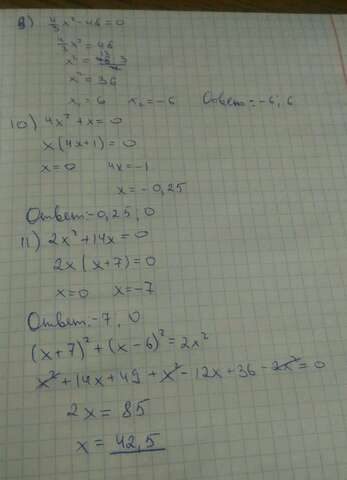 9) 4/3 x² - 48 = 0
4/3 x² = 48
x² = 48·3/4
x² = 36
x₁ = 6 x₂ = -6 Ответ: -6; 6
10) 4x² + x = 0
x(4x+1) = 0
x = 0 4x = -1
x = -0,25
Ответ: -0,25; 0
11) 2x² + 14x = 0
2x(x+7) = 0
x = 0 x = -7
Ответ: -7; 0
(x+7)² + (x-6)² = 2x²
x² + 14x + 49 + x² - 12x + 36 - 2x² = 0
2x = 85
x = 42,5